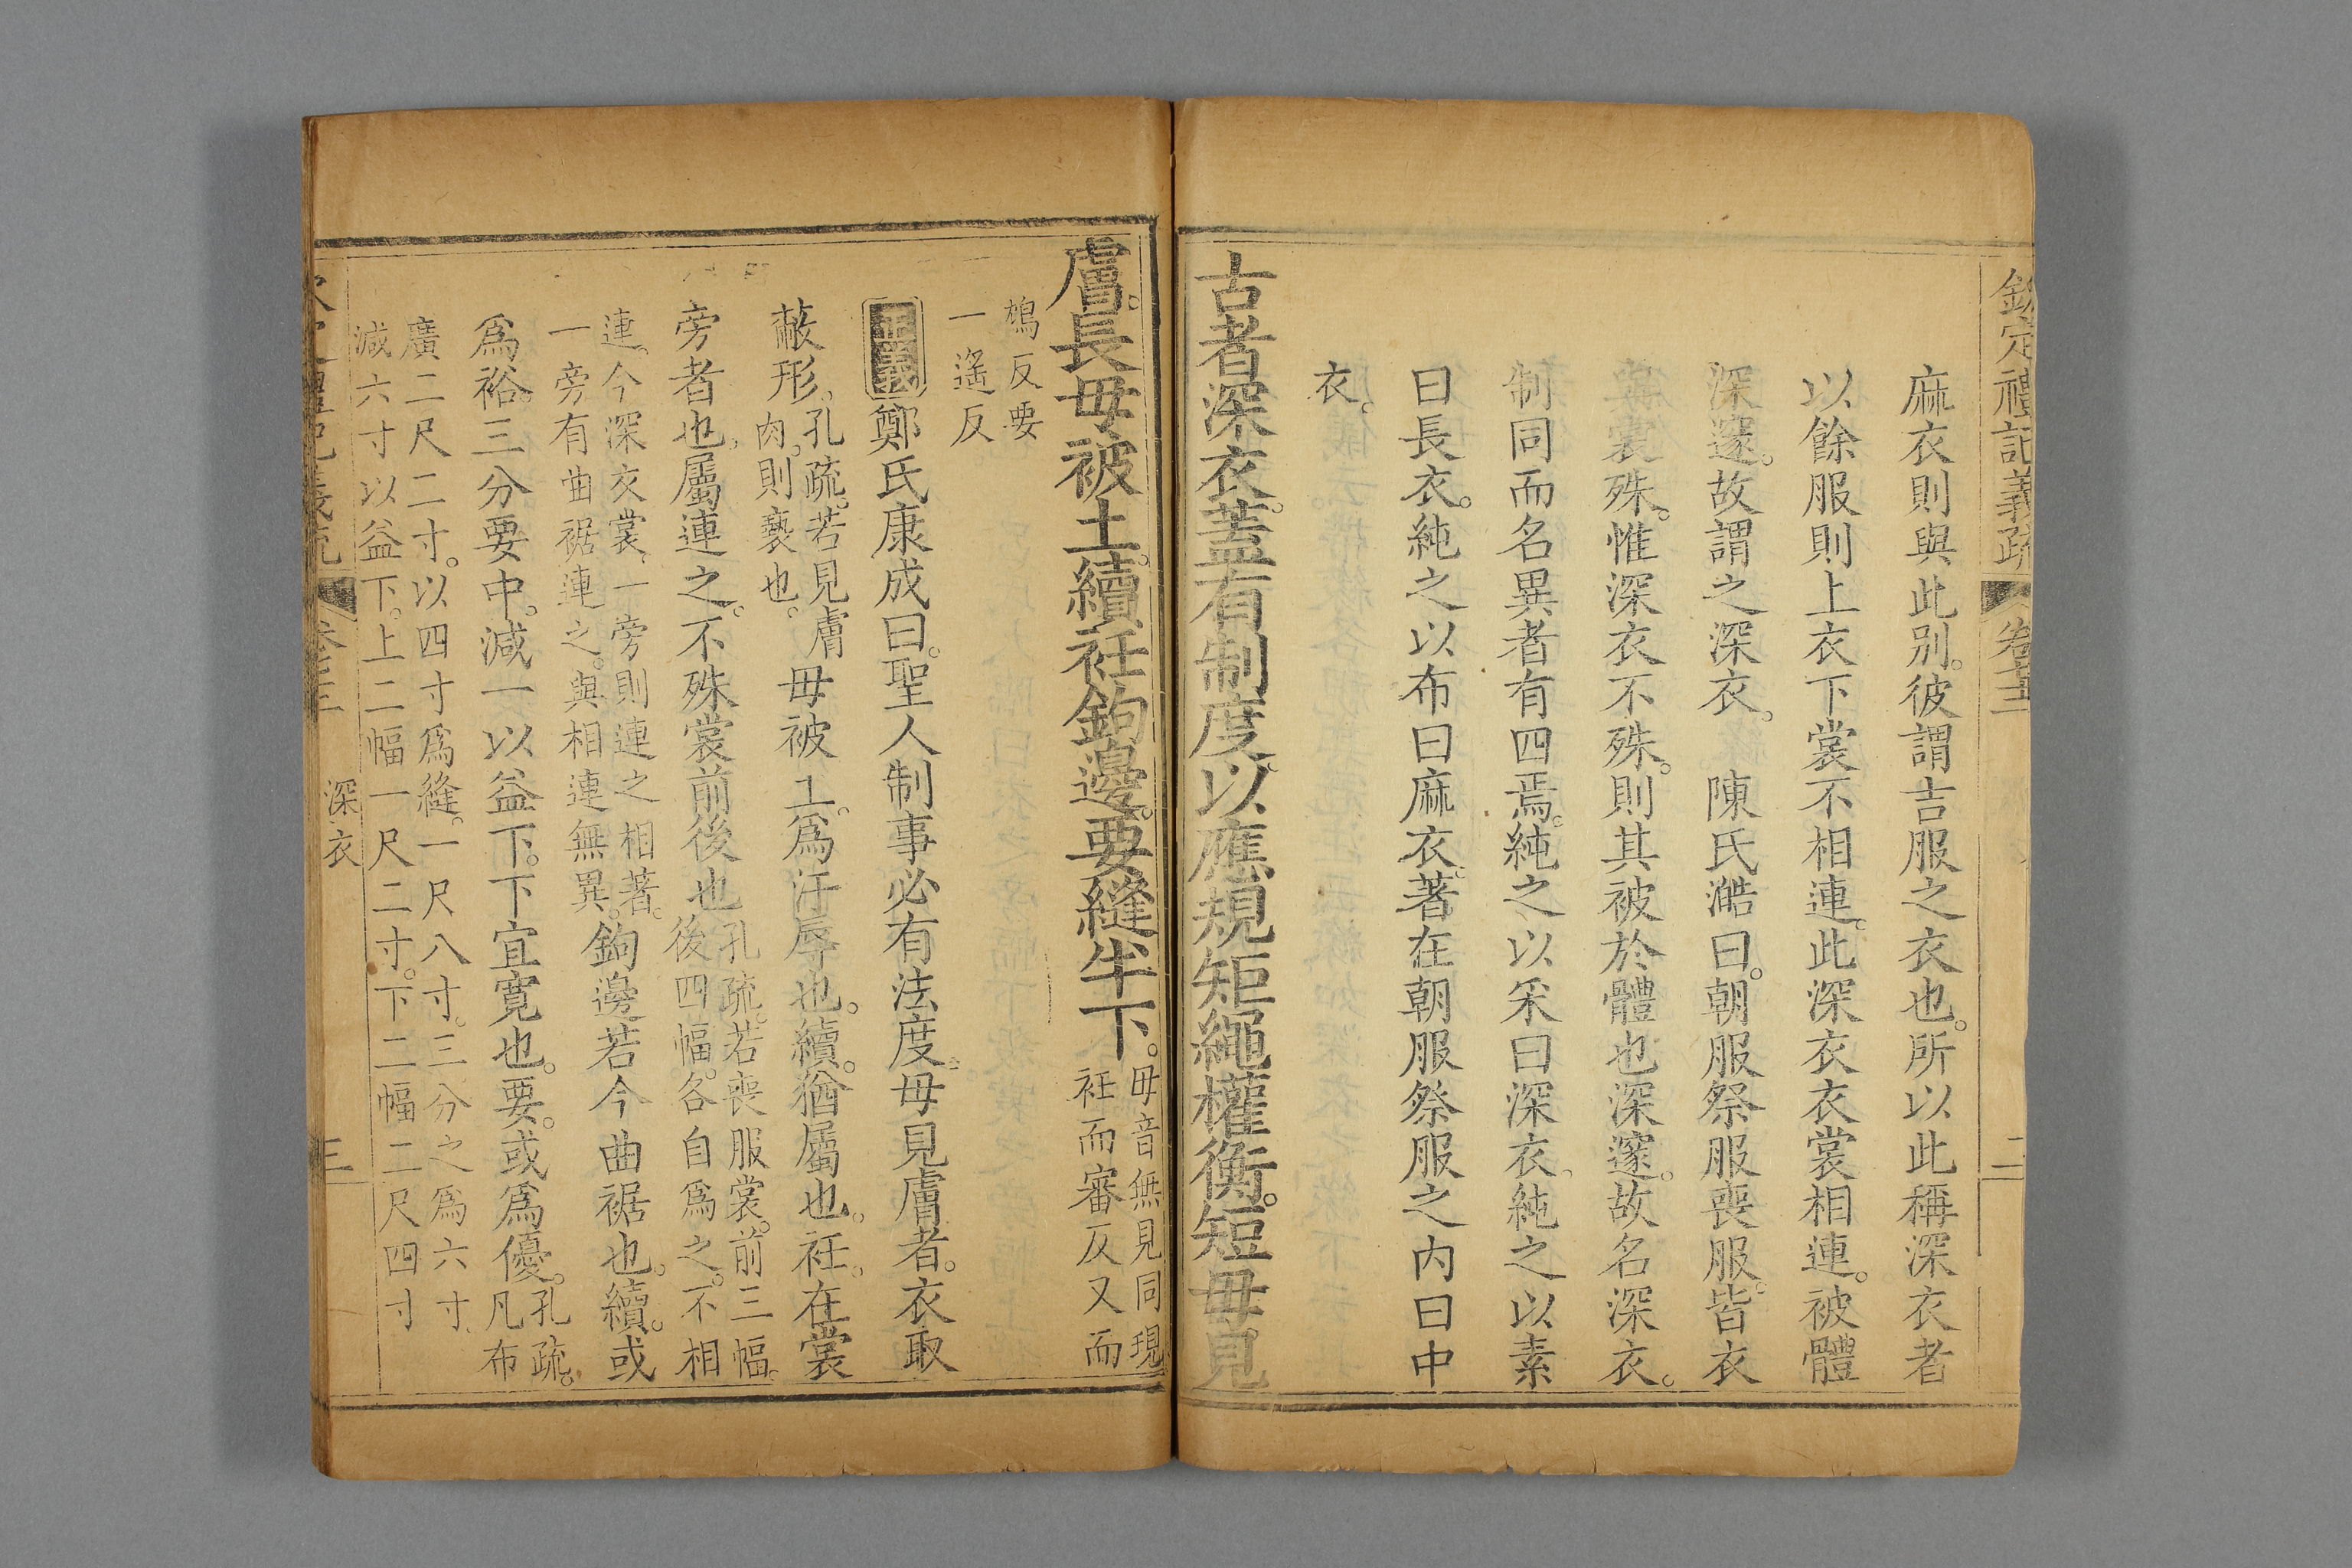 欽定禮記義疏 卷 二
麻衣則與此别。彼謂吉服之衣也。所以此稱深衣者
以餘服則上衣下裳不相連。此深衣衣裳相連。被體
深邃。故謂之深衣。 陳氏澔曰。朝服祭服喪服。皆衣
裳殊。惟深衣不殊。則其被於體也深邃。故名深衣。
制同而名異者有四焉。純之以采曰深衣。純之以素
曰長衣。純之以布曰麻衣。著在朝服祭服之内曰中
衣。
古者深衣。蓋有制度。以應規矩繩權衡。短毋見
膚。長毋被土。續衽鉤邊。要縫半下。
毋音無見同現
衽而審反又而
鳩反要
一遙反
正義 鄭氏康成曰。聖人制事必有法度。毋見膚者。衣取
蔽形。
孔疏。若見膚
肉。則褻也。
毋被土。爲汙辱也。續。猶屬也。衽。在裳
旁者也。屬連之。不殊裳前後也
孔疏。若喪服裳。前三幅。
後四幅。各自爲之。不相
連。今深衣裳。一旁則連之相著。
一旁有曲裾連之。與相連無異。
鉤邊若今曲裾也。續。或
爲裕。三分要中。減一以益下。下宜寬也。要。或爲優。
孔疏。
凡布
廣二尺二寸。以四寸爲縫。一尺八寸。三分之爲六寸
減六寸以益下。上二幅一尺二寸。下二幅二尺四寸
禮記義疏 卷 深衣 三